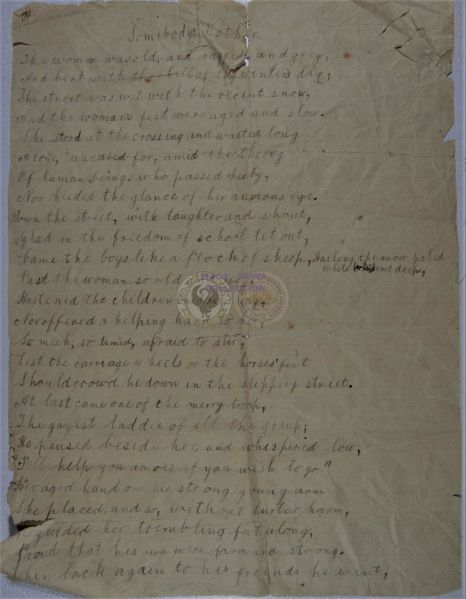 Somibodys Mother
The woman was old, and ragged, and grey,
And bent with the chill of the winters day;
The street was wit with the recent snow,
And the womans feet were aged and slow.
She stood at the crossing and waited long
Along, uncared for, amid the throng
Of human beings who passed her by,
Nor heeded the glance of her anxious eye.
Down the street, with laughter and shout,
Glad in the freedom of school let out,
Came the boys like a flock of sheep, Hailing the snow piled
white and deep,
Past the woman so old
Hastened the children
Nor offered a helping hand to her,
So meek, so timid, afraid to stir,
Lest the carriage wheels or the horses' feet
Should crowd he down in the slippery street.
At last came one of the merry troop,
The gayist laddie of all the group;
He paused beside her, and whispered low,
"I'll help you across if you wish to go"
Her aged hand on his strong young arm
She placed, and so, without hurt or harm,
He guided her trembling feet along,
Proud that his own were farm and strong.
Then back again to his friends he went,